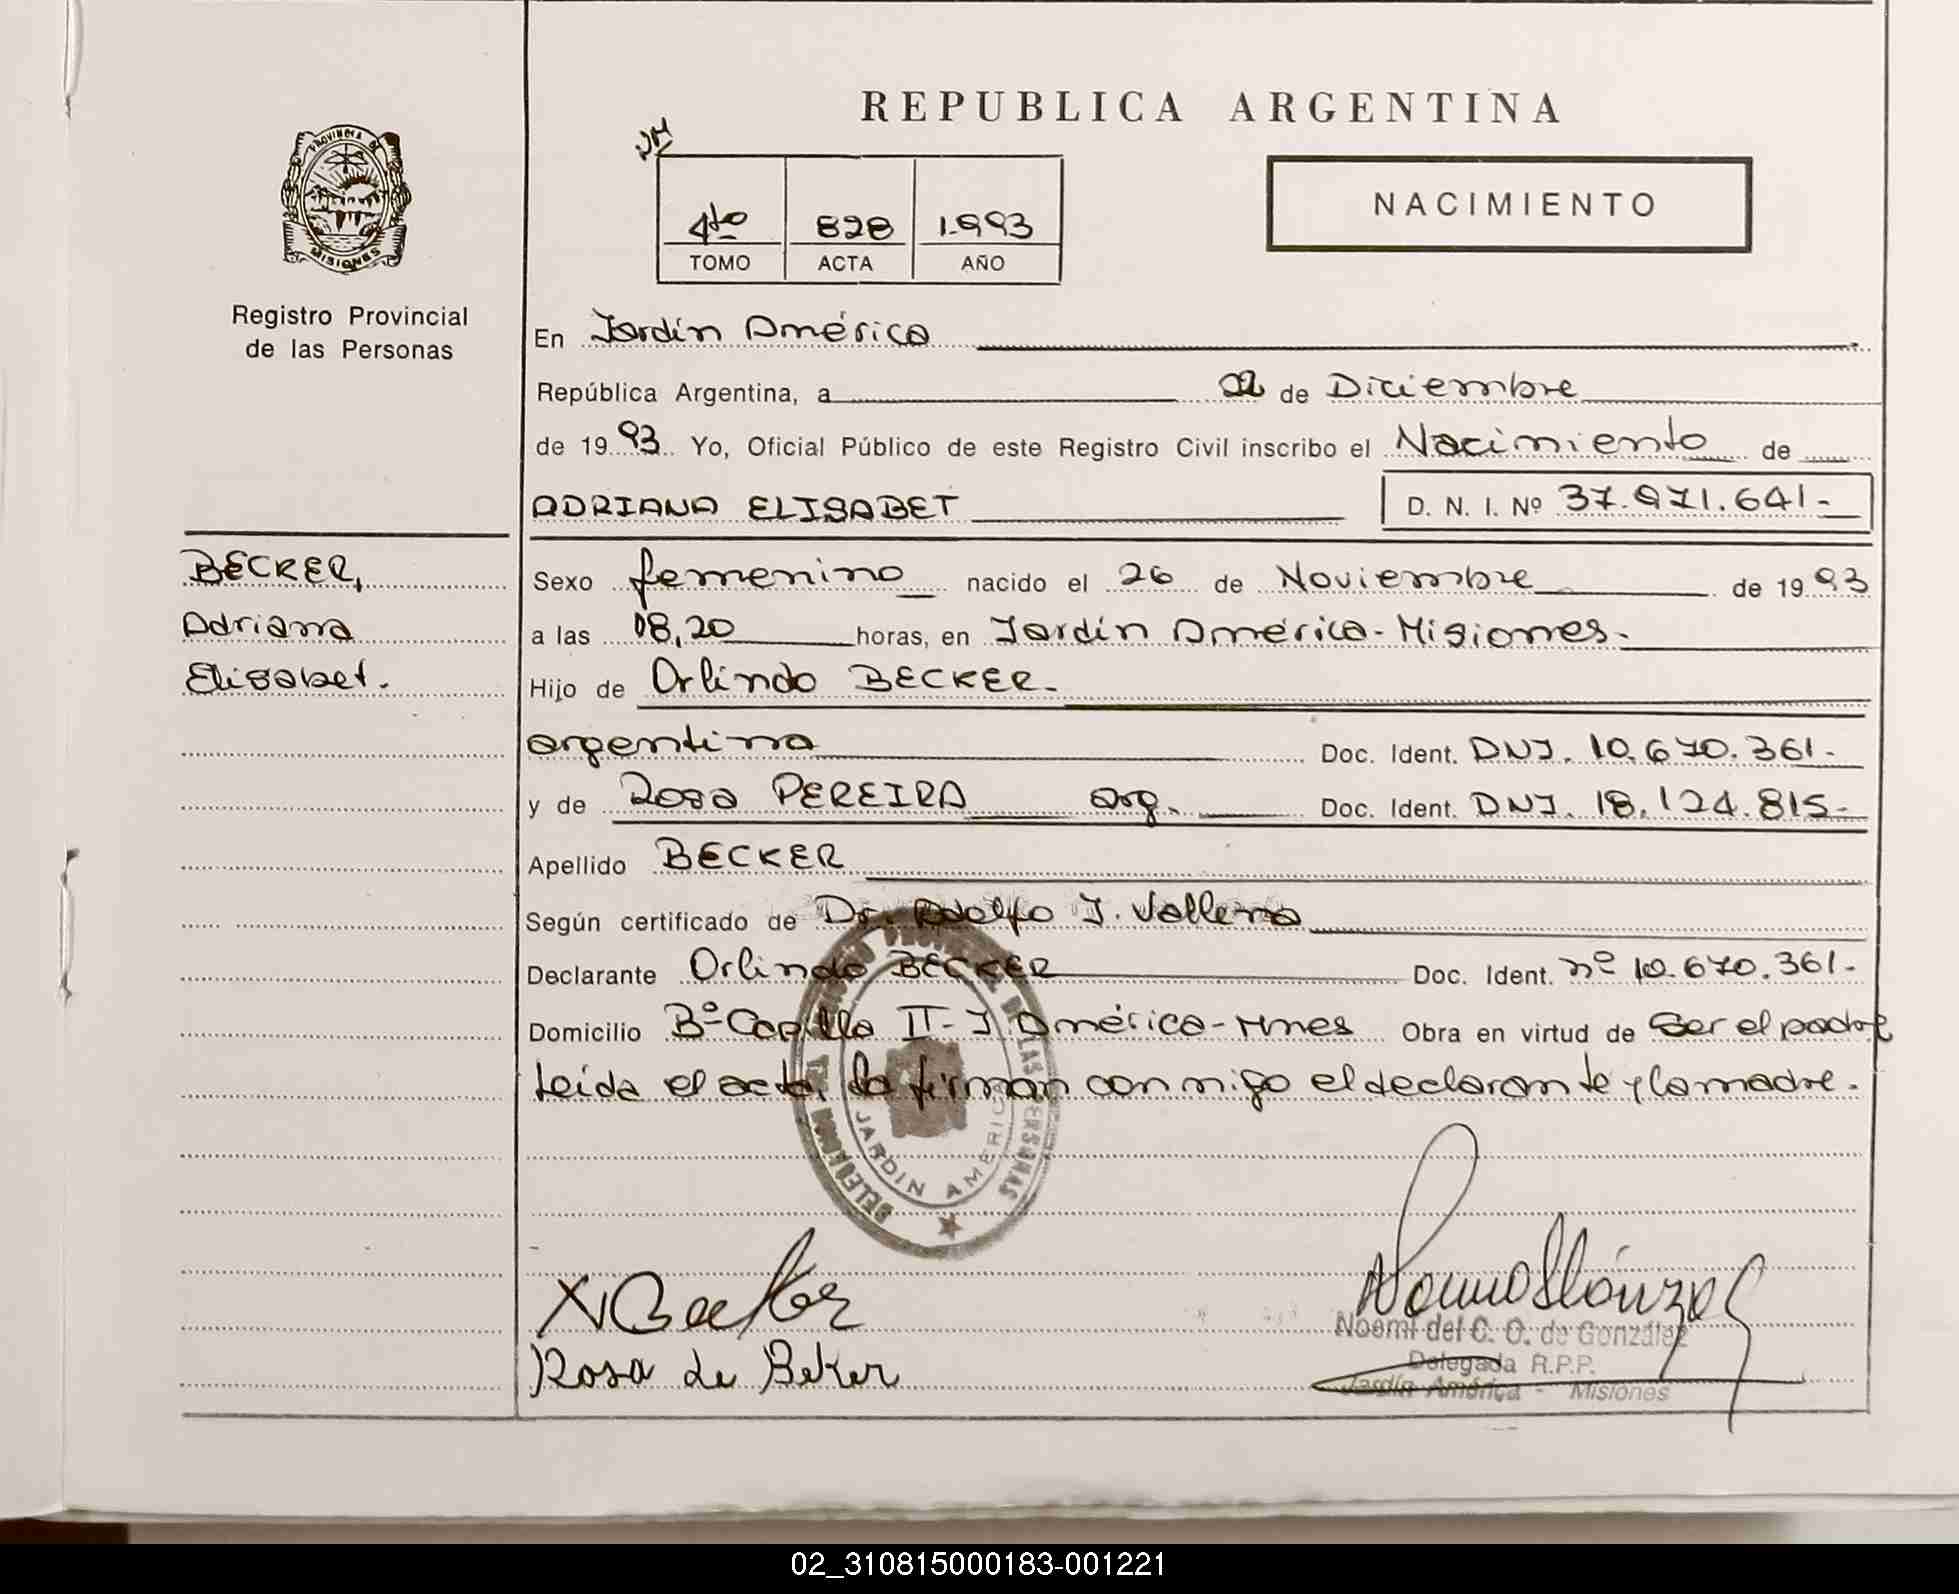 REPUBLICA ARGENTINA
PROVINCIA DE
MISIONES
Registro Provincial
de las Personas
4to 828 1.993
TOMO ACTA AÑO
NACIMIENTO
En Jardín América
República Argentina, a 02 de Diciembre
de 1993 Yo, Oficial Público de este Registro Civil inscribo el Nacimiento de
ADRIANA ELISABET D. N. I. Nº 37.971.641-
BECKER,
Adriana
Elisabet.
Sexo femenino nacido el 26 de Noviembre de 1993
a las 08,20 horas, en Jardín América-Misiones-
Hijo de Orlindo BECKER-
argentina Doc. Ident. DNI. 10.670.361-
y de Rosa PEREIRA arg. Doc. Ident. DNI. 18.124.815-
Apellido BECKER
Según certificado de Dr. Adolfo J. Vallena
Declarante Orlindo BECKER Doc. Ident. nº 10.670.361-
Domicilio Bº Capilla II-J. América-Mnes Obra en virtud de Ser el padre
Leída el acta, la firman conmigo el declarante y la madre.
DELEGACION REGISTRO PROVINCIAL DE LAS PERSONAS
JARDIN AMERICA
Rosa de Beker
Noemí del C. O. de González
Delegada R.P.P.
Jardín América - Misiones
02_310815000183-001221